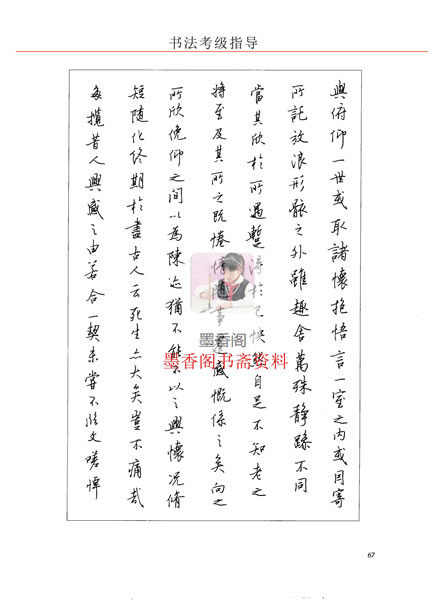 书法考级指导
與俯仰一世或取諸懷抱悟言一室之内或因寄
所託放浪形骸之外雖趣舍萬殊静躁不同
當其欣於所遇暫得於己快然自足不知老之
將至及其所之既惓情随事遷感慨係之矣向之
所欣俛仰之间以為陳迹猶不能不以之興懷况脩
短随化终期於盡古人云死生亦大矣豈不痛哉
每攬昔人興感之由若合一契未嘗不臨文嗟悼
墨香阁
墨香阁书斋资料
67